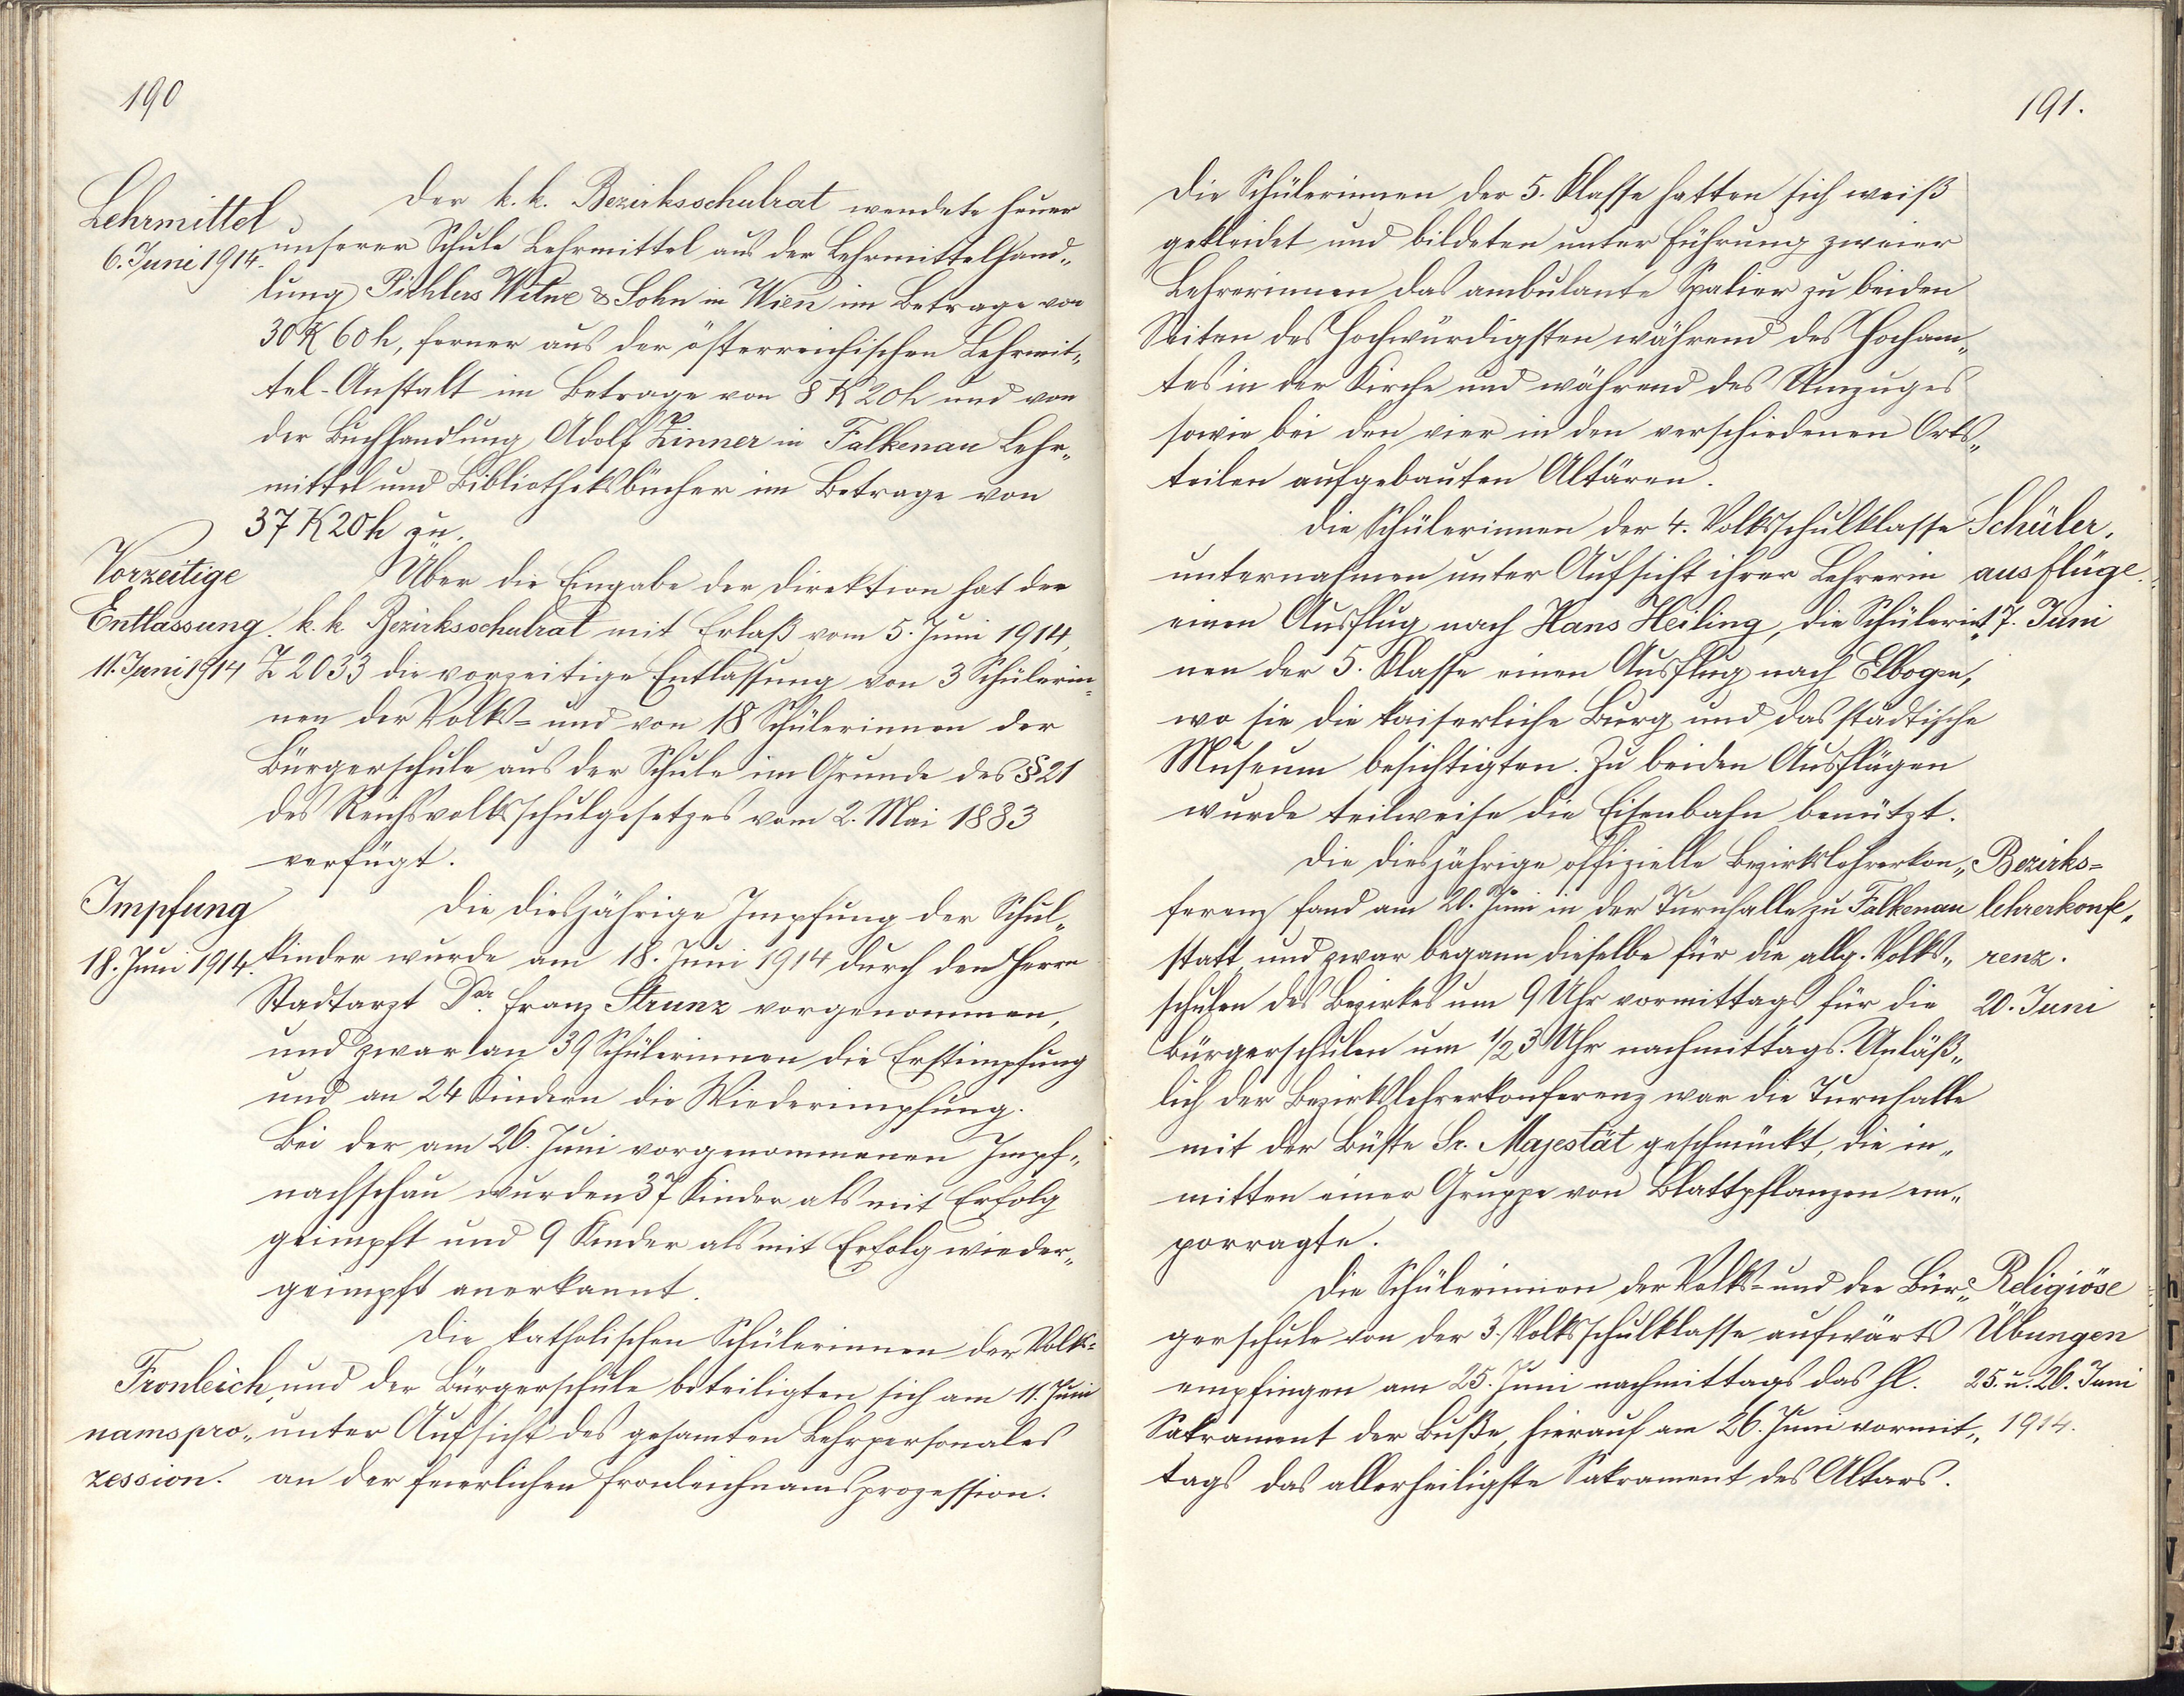 190
Lehrmittel
6. Juni 1914.
Der k. k. Bezirksschulrat wendete heuer
unserer Schule Lehrmittel aus der Lehrmittelhand„
lung Pichlers Witwe & Sohn in Wien im Betrage von
30 K 60 h, ferner aus der österreichischen Lehrmit„
tel-Anstalt im Betrage von 8 K 20 h und von
der Buchhandlung Adolf Zinner in Falkenau Lehr„
mittel und Bibliotheksbücher im Betrage von
37 K 20 h zu.
Vorzeitige
Entlassung.
11. Juni 1914
Über die Eingabe der Direktion hat der
k. k. Bezirksschulrat mit Erlaß vom 5. Juni 1914,
Z 2033 die vorzeitige Entlassung von 3 Schülerin„
nen der Volks- und von 18 Schülerinnen der
Bürgerschule aus der Schule im Grunde des § 21
des Reichsvolksschulgesetzes vom 2. Mai 1883
verfügt.
Impfung
18. Juni 1914.
Die diesjährige Impfung der Schul„
kinder wurde am 18. Juni 1914 durch den Herrn
Stadtarzt Dr. Franz Strunz vorgenommen,
und zwar an 39 Schülerinnen die Erstimpfung
und an 24 Kindern die Wiederimpfung.
Bei der am 26. Juni vorgenommenen Impf„
nachschau wurden 37 Kinder als mit Erfolg
geimpft und 9 Kinder als mit Erfolg wieder„
geimpft anerkannt.
Fronleich„
namspro„
zession.
Die katholischen Schülerinnen der Volks-
und der Bürgerschule beteiligten sich am 11. Juni
unter Aufsicht des gesamten Lehrpersonales
an der feierlichen Fronleichnamsprozession.
191.
Die Schülerinnen der 5. Klasse hatten sich weiß
gekleidet und bildeten unter Führung zweier
Lehrerinnen das ambulante Spalier zu beiden
Seiten des Hochwürdigsten während des Hocham„
tes in der Kirche und während des Umzuges
sowie bei den vier in den verschiedenen Orts„
teilen aufgebauten Altären.
Die Schülerinnen der 4. Volksschulklasse
unternahmen unter Aufsicht ihrer Lehrerin
einen Ausflug nach Hans Heiling, die Schülerin„
nen der 5. Klasse einen Ausflug nach Elbogen,
wo sie die kaiserliche Burg und das städtische
Museum besichtigten. Zu beiden Ausflügen
wurde teilweise die Eisenbahn benützt.
Schüler„
ausflüge.
17. Juni
Die diesjährige offizielle Bezirkslehrerkon„
ferenz fand am 20. Juni in der Turnhalle zu Falkenau
statt und zwar begann dieselbe für die allg. Volks„
schulen des Bezirkes um 9 Uhr vormittags, für die
Bürgerschulen um 1/2 3 Uhr nachmittags. Anläß„
lich der Bezirkslehrerkonferenz war die Turnhalle
mit der Büste Sr. Majestät geschmückt, die in„
mitten einer Gruppe von Blattpflanzen em„
porragte.
Bezirks-
lehrerkonfe„
renz.
20. Juni
Die Schülerinnen der Volks- und der Bür„
gerschule von der 3. Volksschulklasse aufwärts
empfingen am 25. Juni nachmittags das hl.
Sakrament der Buße, hierauf am 26. Juni vormit„
tags das allerheiligste Sakrament des Altars.
Religiöse
Übungen
25. u. 26. Juni
1914.